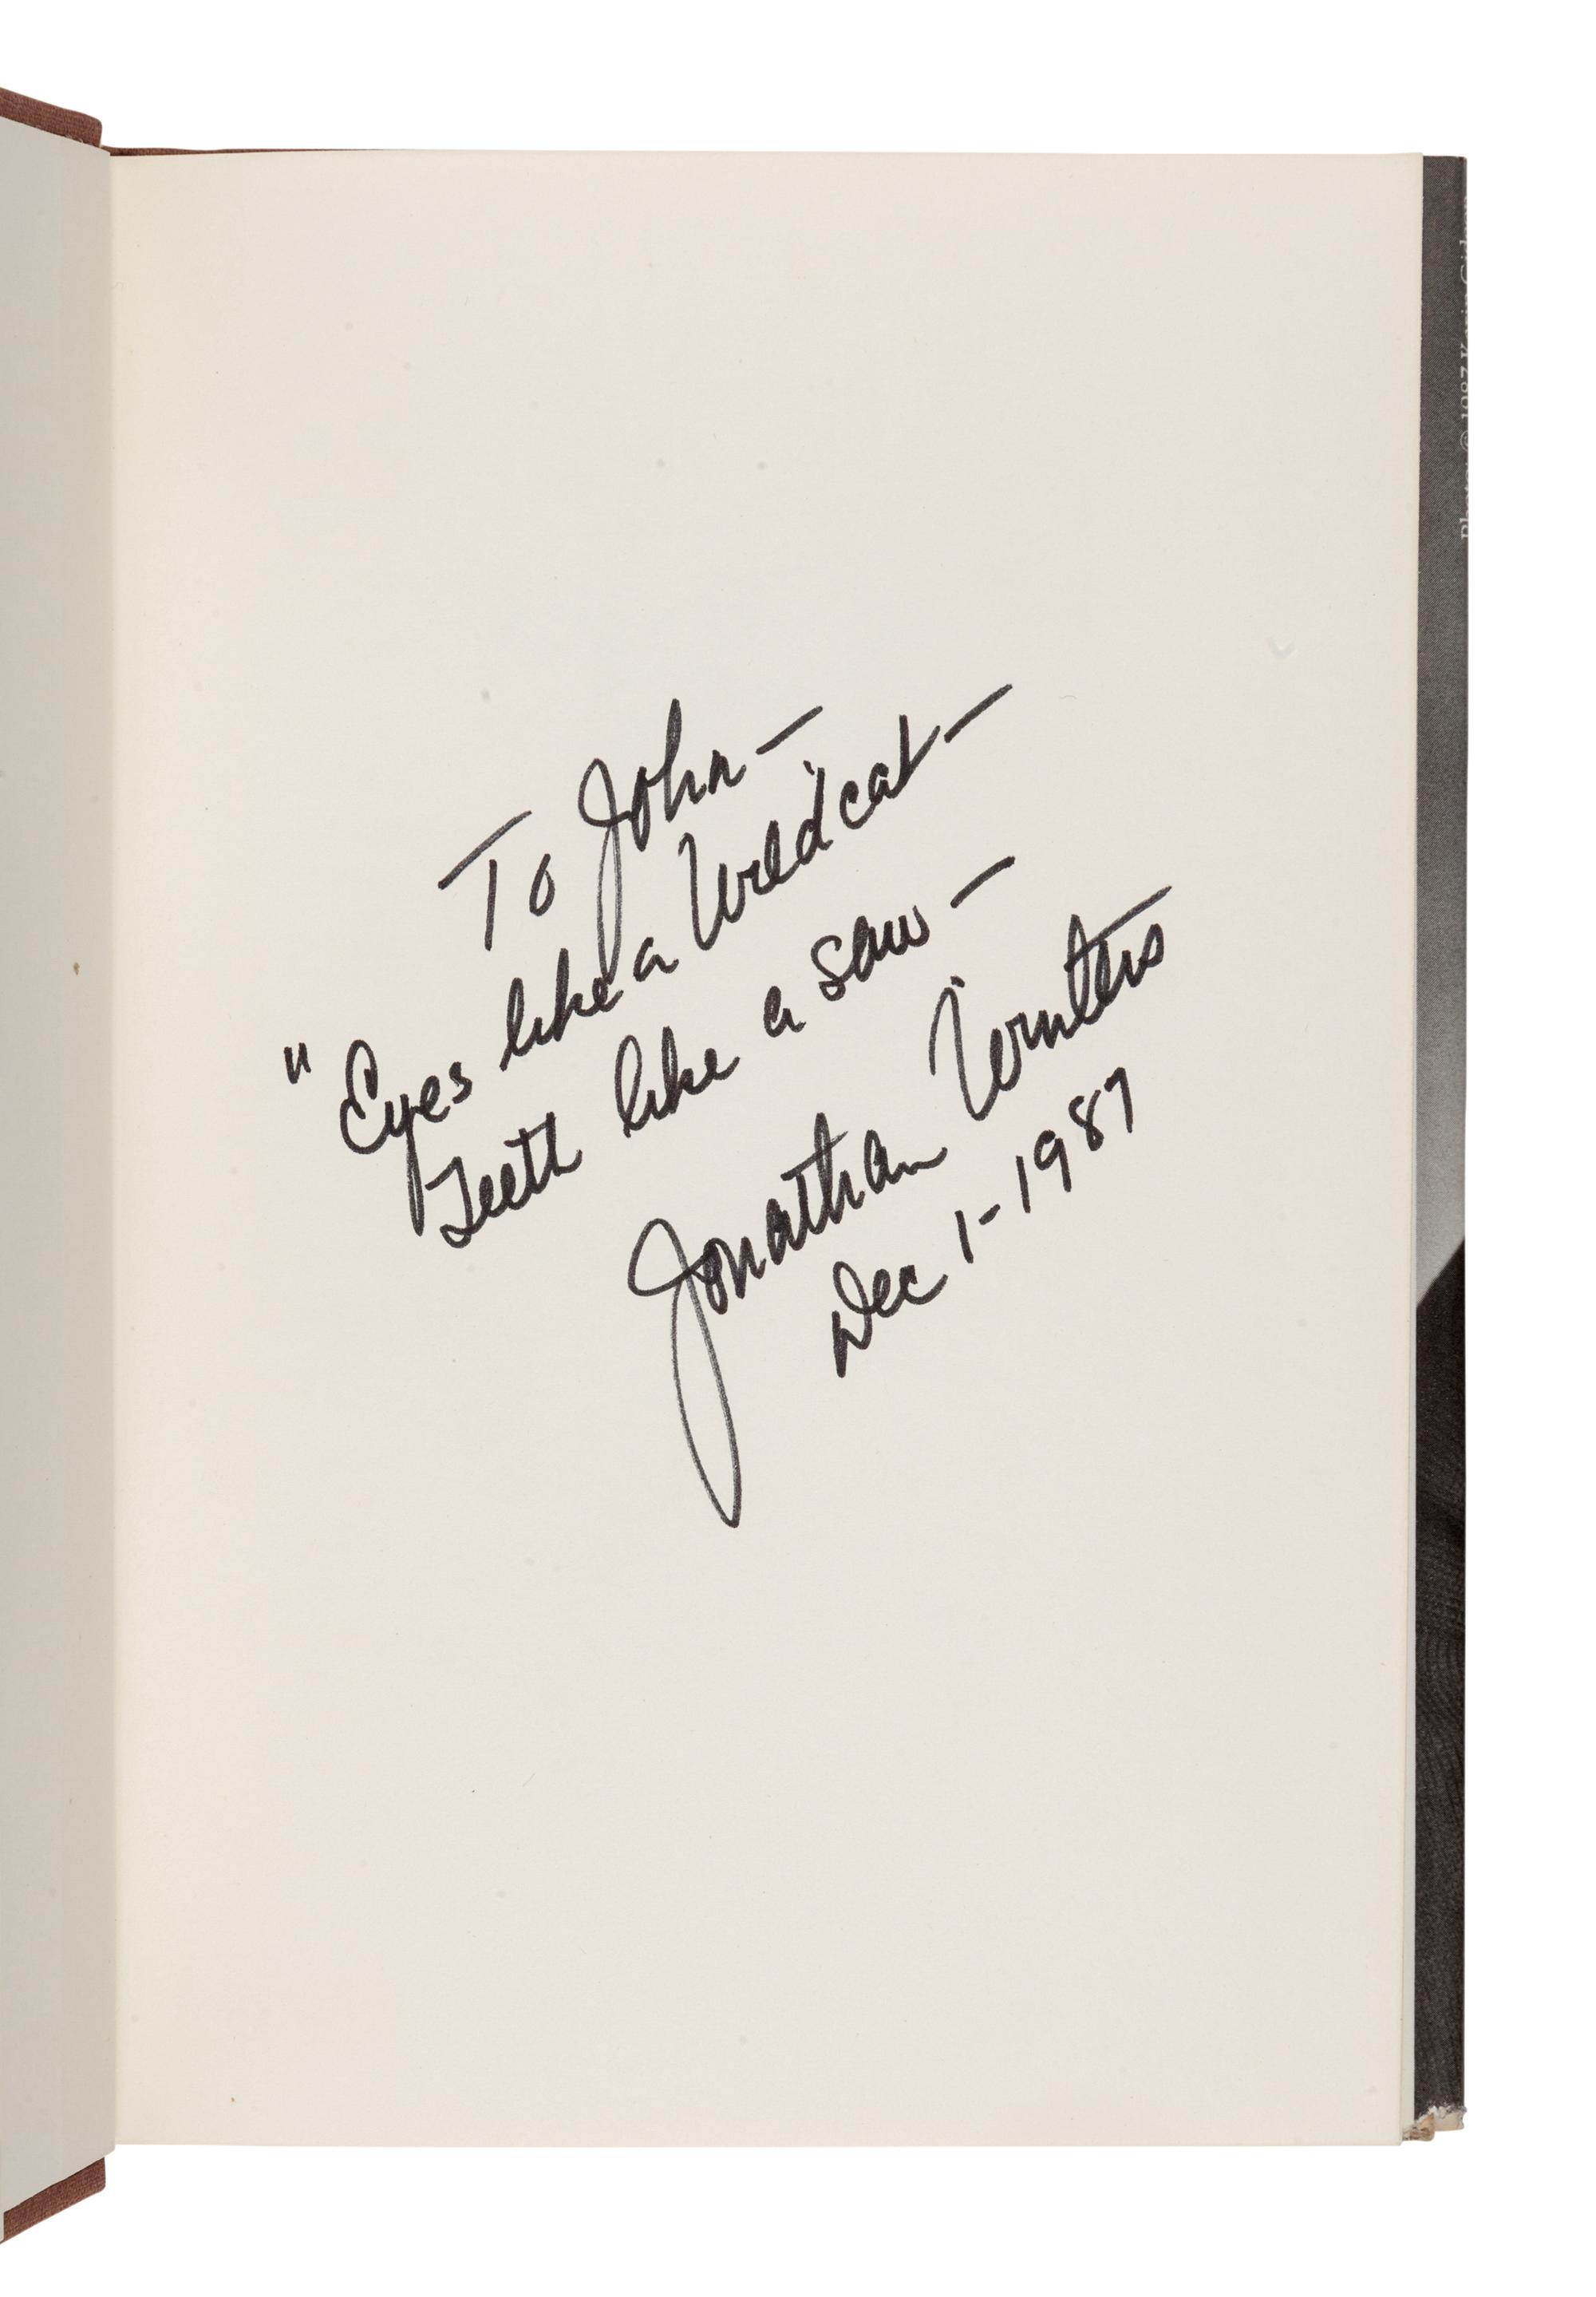 To John—
"Eyes like a Wildcat—
Teeth like a saw—
Jonathan Winters
Dec 1-1987
© 1987 Karin